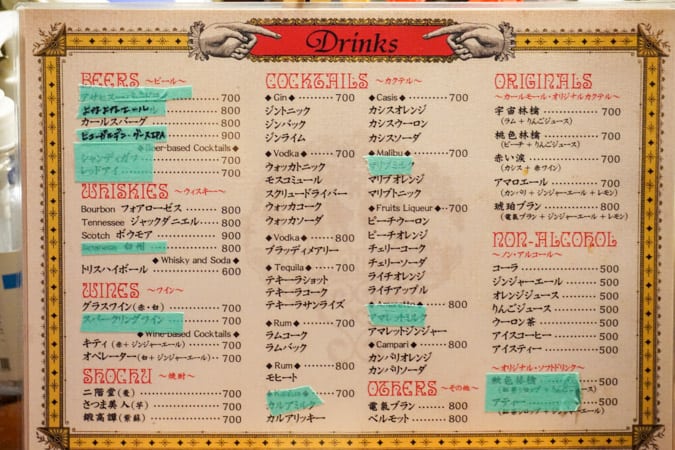 Drinks
BEERS ～ビール～
700
800
カールスバーグ 800
900
Beer-based Cocktails◆
シャンディガフ 700
レッドアイ 700
WHISKIES ～ウィスキー～
Bourbon フォアローゼス 800
Tennessee ジャックダニエル 800
Scotch ボウモア 900
Japanese 白州 800
◆Whisky and Soda◆
トリスハイボール 600
WINES ～ワイン～
グラスワイン(赤・白) 700
スパークリングワイン 700
◆Wine-based Cocktails◆
キティ(赤+ジンジャーエール) 700
オペレーター(白+ジンジャーエール) 700
SHOCHU ～焼酎～
二階堂(麦) 700
さつま美人(芋) 700
鍛高譚(紫蘇) 700
COCKTAILS ～カクテル～
◆Gin◆ 700
ジントニック
ジンバック
ジンライム
◆Vodka◆ 700
ウォッカトニック
モスコミュール
スクリュードライバー
ウォッカコーク
ウォッカソーダ
◆Vodka◆ 800
ブラッディメアリー
◆Tequila◆ 700
テキーラショット
テキーラコーク
テキーラサンライズ
◆Rum◆ 700
ラムコーク
ラムバック
◆Rum◆ 800
モヒート
700
カルアミルク
カルアリッキー
◆Casis◆ 700
カシスオレンジ
カシスウーロン
カシスソーダ
◆Malibu◆ 700
マリブミルク
マリブオレンジ
マリブトニック
◆Fruits Liqueur◆ 700
ピーチウーロン
ピーチオレンジ
チェリーコーク
チェリーソーダ
ライチオレンジ
ライチアップル
800
アマレットミルク
アマレットジンジャー
◆Campari◆ 800
カンパリオレンジ
カンパリソーダ
OTHERS ～その他～
電氣ブラン 800
ベルモット 800
ORIGINALS
～カールモール・オリジナルカクテル～
宇宙林檎 700
(ラム+りんごジュース)
桃色林檎 700
(ピーチ+りんごジュース)
赤い波 700
(カシス+赤ワイン)
アマロエール 700
(カンパリ+ジンジャーエール+レモン)
琥珀ブラン 800
(電氣ブラン+ジンジャーエール+レモン)
NON-ALCOHOL
～ノン・アルコール～
コーラ 500
ジンジャーエール 500
オレンジジュース 500
りんごジュース 500
ウーロン茶 500
アイスコーヒー 500
アイスティー 500
～オリジナル・ソフトドリンク～
林檎 500
りんごジュース)
アティー 500
ジンジャーエール)